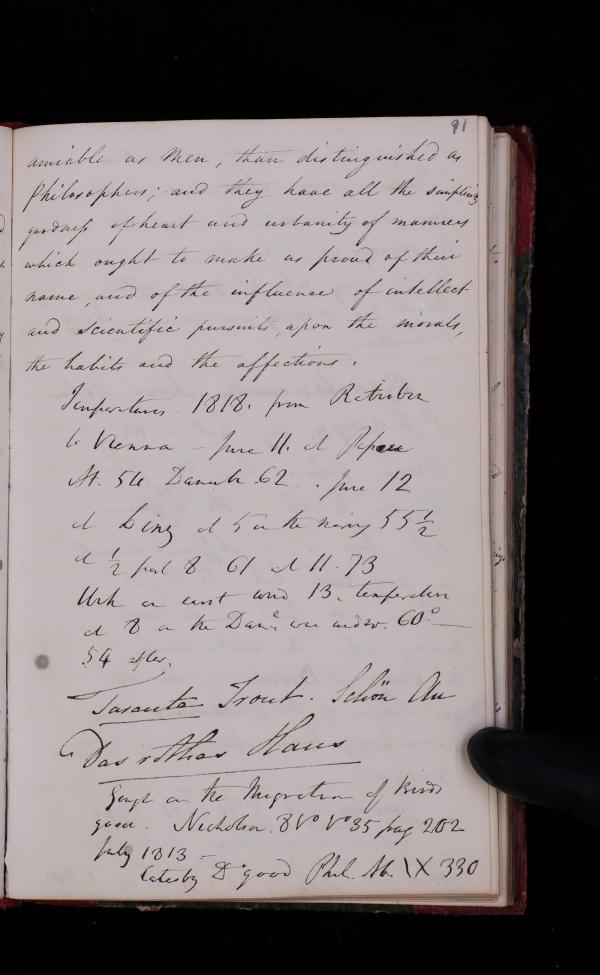 91
amiable as Men, than distinguished as
Philosophers; and they have all the simplicity
goodness of heart and urbanity of manners
which ought to make us proud of their
name, and of the influence of intellect
and scientific pursuits, upon the morals,
the habits and the affections.
Temperatures. 1818. from Ratisbon
to Vienna – June 11. at
At. 54 Danube 62. June 12
at Linz at 5 in the morning 55 1/2
at 1/2 past 8 61 at 11. 73
With an east wind 13. temperature
at 8 on the Dane. 60°—
54 after.
Trout. Schön Au
Das rothas Haus
Gough on the Migration of Birds
good. Nicholson. 8vo Vo 35 pag 202
July 1813 –
Catesby Do good Phil. Ab. IX 330